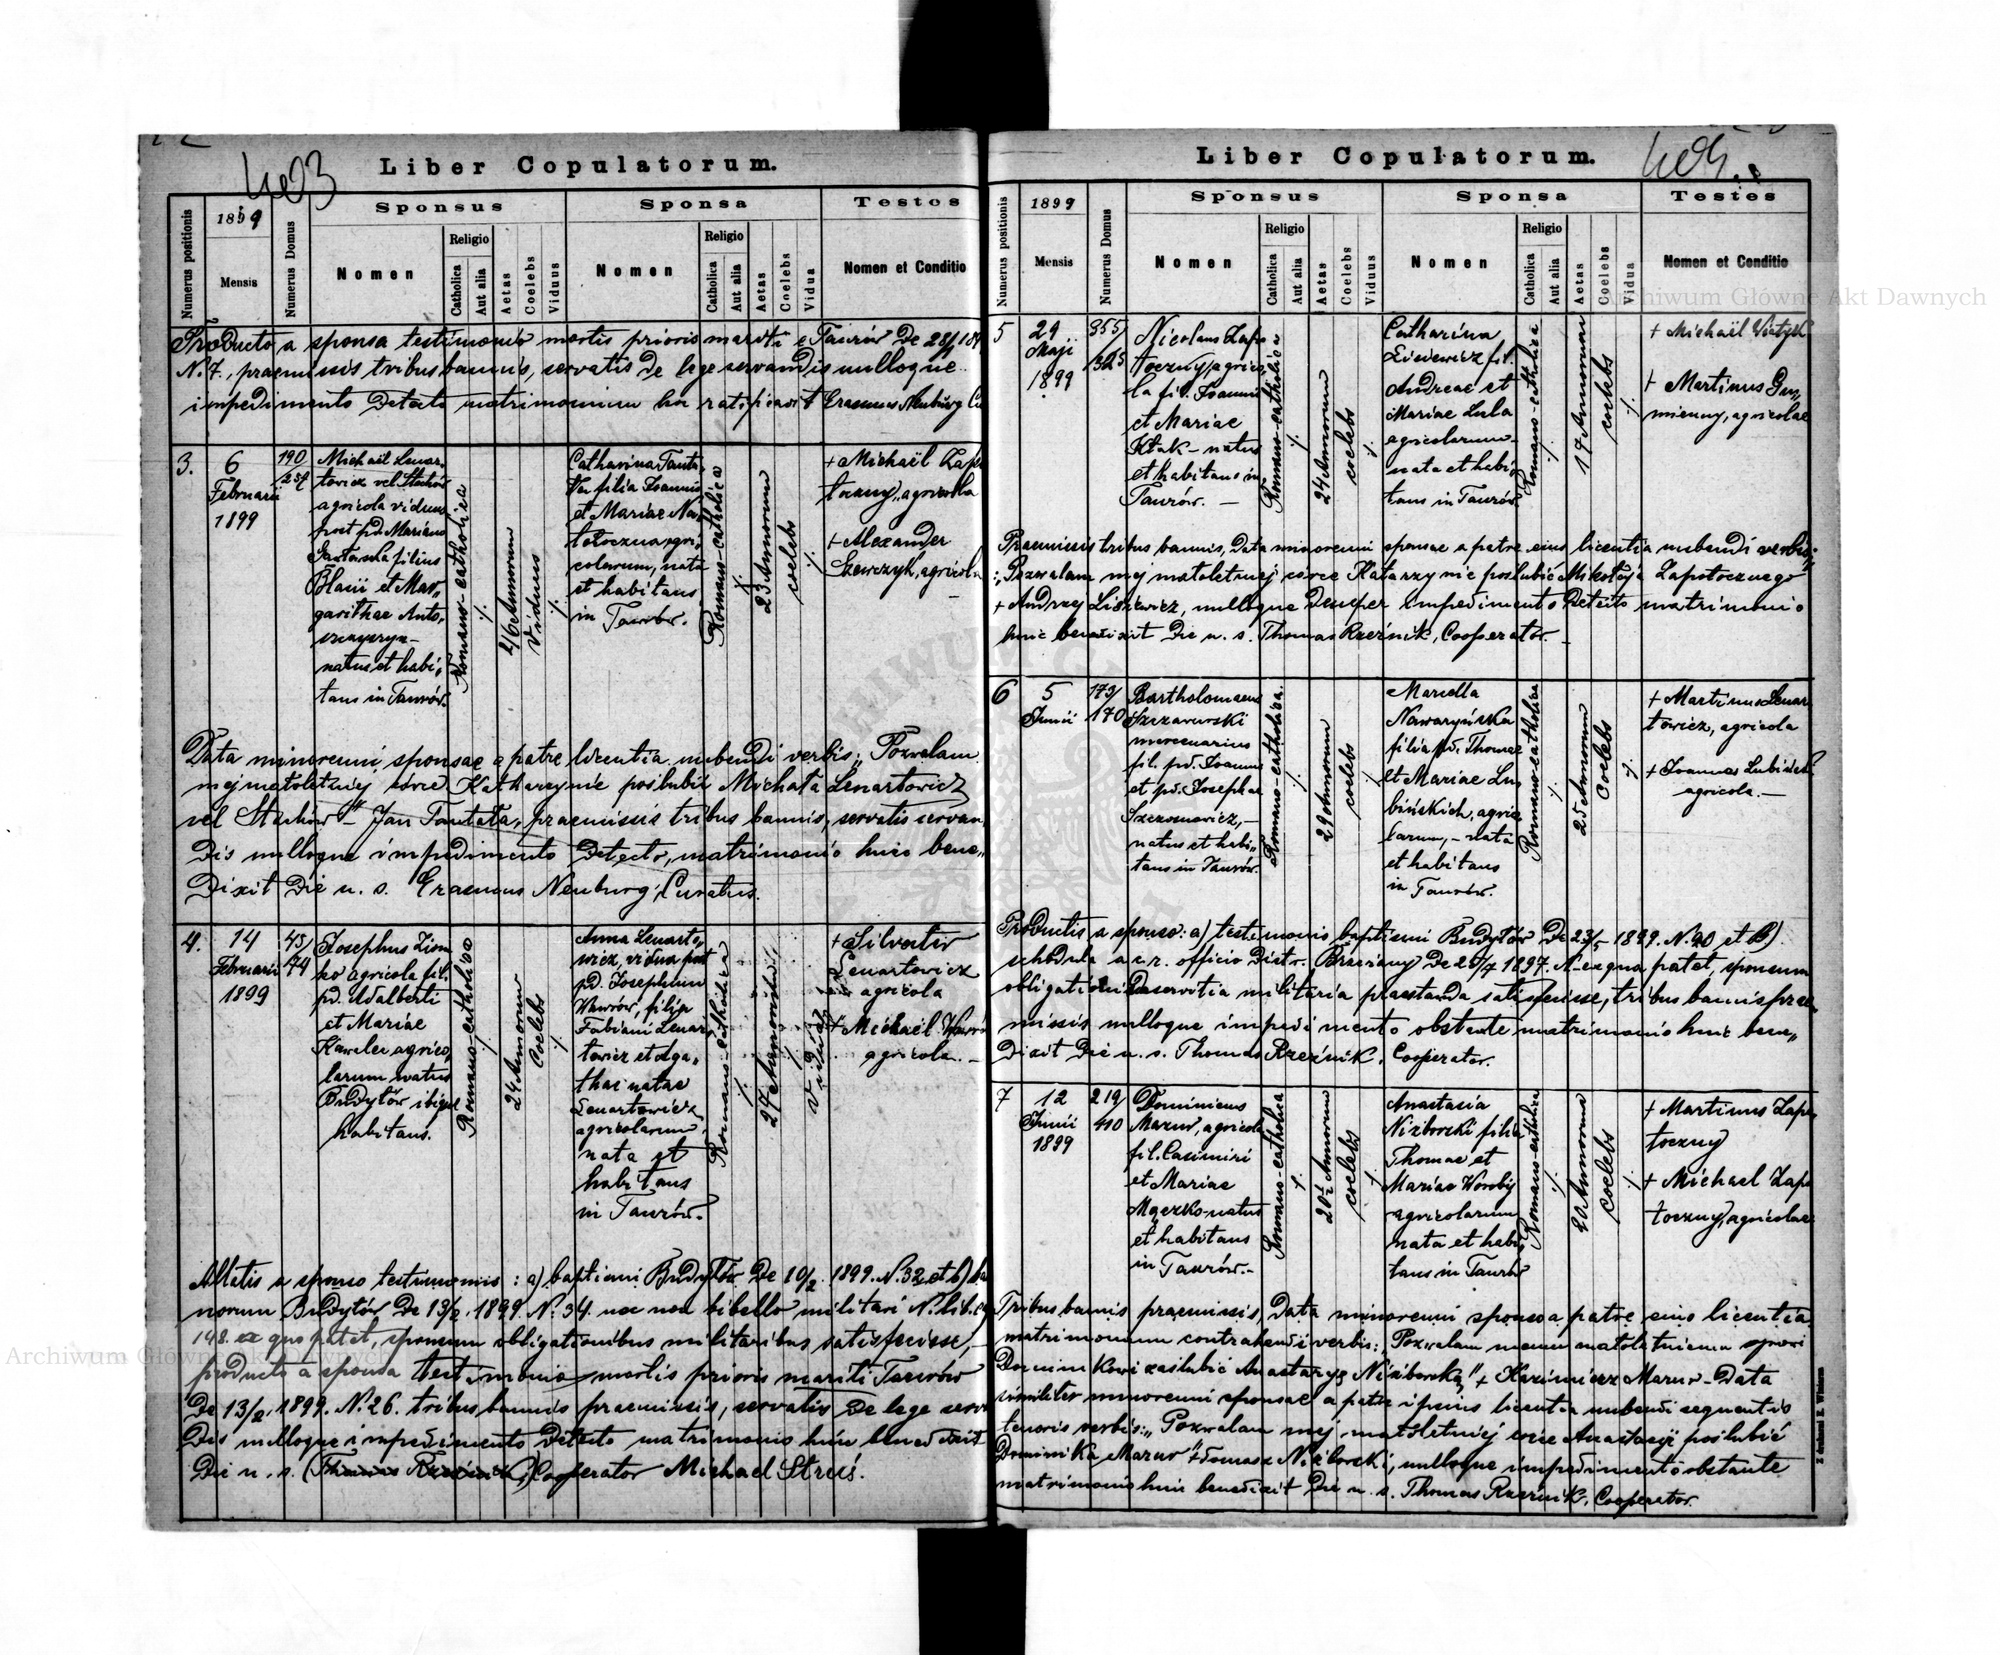 Liber Copulatorum.
1899
Numerus positionis
Mensis
Numerus Domus
Sponsus
Nomen
Religio
Catholica
Aut alia
Aetas
Coelebs
Viduus
Sponsa
Nomen
Religio
Catholica
Aut alia
Aetas
Coelebs
Vidua
Testes
Nomen et Conditio
Producto a sponsa testimonio mortis prioris mariti e Taurów
N. 7., praemissis tribus bannis, servatis de lege servandis nulloque
impedimento detecto matrimonium hoc ratificavit Erasmus Neuburg
3.
6
Februarii
1899
190
257
Michaël Lenar-
towicz vel Stachów
agricola viduus
post pd. Mariano
filius
Blasii et Mar„
garithae Anto„
natus et habi„
tans in Taurów.
Romano-catholica
46 Annorum
Viduus
Catharina
filia Joannis
et Mariae
agri„
colarum, nata
et habitans
in Taurów.
Romano-catholica
23 Annorum
coelebs
+ Michaël Zapo
toczny, agricola
+ Alexander
Szewczyk, agricola
Data minorenni sponsae a patre licentia nubendi verbis: „Pozwalam
mej małoletniéj córce Katharzynie poślubić Michała Lenartowicz
vel Stachów" Jan praemissis tribus bannis, servatis servan„
dis nulloque impedimento detecto, matrimonio huic bene„
dixit die u. s. Erasmus Neuburg, Curatus.
4.
14
Februarii
1899
45
74
Josephus Ziom
ko agricola fil.
pd. Adalberti
et Mariae
agrico„
larum natus
Budyłów ibique
habitans.
Romano-catholica
24 Annorum
Coelebs
Anna Lenarto„
wicz, vidua post
pd. Josephum
Wawrów, filia
Fabiani Lenar
towicz et Aga„
thae natae
Lenartowicz
agricolarum,
nata et
habitans
in Taurów.
Romano-catholica
27 Annorum
vidua
+ Silvester
Lenartowicz
agricola
+ Michaël
agricola.
Allatis a sponso testimoniis: a) baptismi Budyłów de 10/2. 1899. N. 32 et b)
norum Budyłów de 13/2. 1899. N. 34. nec non libello militari N. lib.
148. ex quo patet, sponsum obligationibus militaribus satisfecisse,
producto a sponsa testimonio mortis prioris mariti Taurów
de 13/2. 1899. N. 26. tribus bannis praemissis, servatis de lege servan
dis nulloque impedimento detecto matrimonio huic benedixit
die u. s. (Thomas Rzeźnik,) Cooperator Michael Struś.
Liber Copulatorum.
1899
Numerus positionis
Mensis
Numerus Domus
Sponsus
Nomen
Religio
Catholica
Aut alia
Aetas
Coelebs
Viduus
Sponsa
Nomen
Religio
Catholica
Aut alia
Aetas
Coelebs
Vidua
Testes
Nomen et Conditio
5
29
Maji
1899
355
325
Nicolaus Zapo
toczny, agrico„
la fil. Joannis
et Mariae
Ktak - natus
et habitans in
Taurów. —
Romano-catholica
24 Annorum
coelebs
Catharina
Lisiewicz fil.
Andreae et
Mariae Lula
agricolarum
nata et habi„
tans in Taurów.
Romano-catholica
17 Annorum
coelebs
+ Michaël
+ Martinus
agricolae
Praemissis tribus bannis, data minorenni sponsae a patre eius licentia nubendi verbis:
„Pozwalam mej małoletniej córce Katarzynie poślubić Mikołaja Zapotocznego"
+ Andrzej Lisiewicz, nulloque demper impedimento detecto matrimonio
huic benedixit die u. s. Thomas Rzeźnik, Cooperator.
6
5
Junii
173
170
Bartholomaeus
Szczawurski
mercenarius
fil. pd. Joannis
et pd. Josephae
natus et habi„
tans in Taurów.
Romano-catholica.
29 Annorum
coelebs
Mariella
Nawaryńska
filia pd. Thomae
et Mariae Lu
bińskich, agrico
larum, - nata
et habitans
in Taurów.
Romano-catholica
25 Annorum
Coelebs
+ Martinus Lenar
towicz, agricola
+ Joannes
agricola. —
Productis a sponso: a) testimonio baptismi Budyłów de 23/5 1899. N. 40 et b)
schedula a c. r. officio Distr. Brzeżany de 25/7 1897. N- ex qua patet, sponsum
servitia militaria praestanda satisfecisse, tribus bannis prae
missis nulloque impedimento obstante matrimonio huic bene„
dixit die u. s. Thomas Rzeźnik, Cooperator.
7
12
Junii
1899
219
410
Dominicus
Mazur, agricola
fil. Casimiri
et Mariae
Mączko natus
et habitans
in Taurów.
Romano-catholica
20½ Annorum
coelebs
Anastasia
Niziborski filia
Thomae et
Mariae Woroby
agricolarum
nata et habi„
tans in Taurów
Romano-catholica
20 Annorum
coelebs
+ Martinus Zapo
toczny
+ Michael Zapo
toczny, agricolae
Tribus bannis praemissis, data minorenni sponso a patre suo licentia
matrimonium contrahendi verbis: „Pozwalam memu małoletniemu synowi
Dominikowi zaślubić Anastazyę Niziborską" + Kazimierz Mazur - Data
similiter minorenni sponsae a patre ipsius licentia nubendi sequentis
tenoris verbis: „Pozwalam mej małoletniéj córce Anastazji poślubić
Dominika Mazur" + Tomasz Niziborski, nulloque impedimento obstante
matrimonio huic benedixit die u. s. Thomas Rzeźnik, Cooperator.
Archiwum Główne Akt Dawnych
Archiwum Główne Akt Dawnych